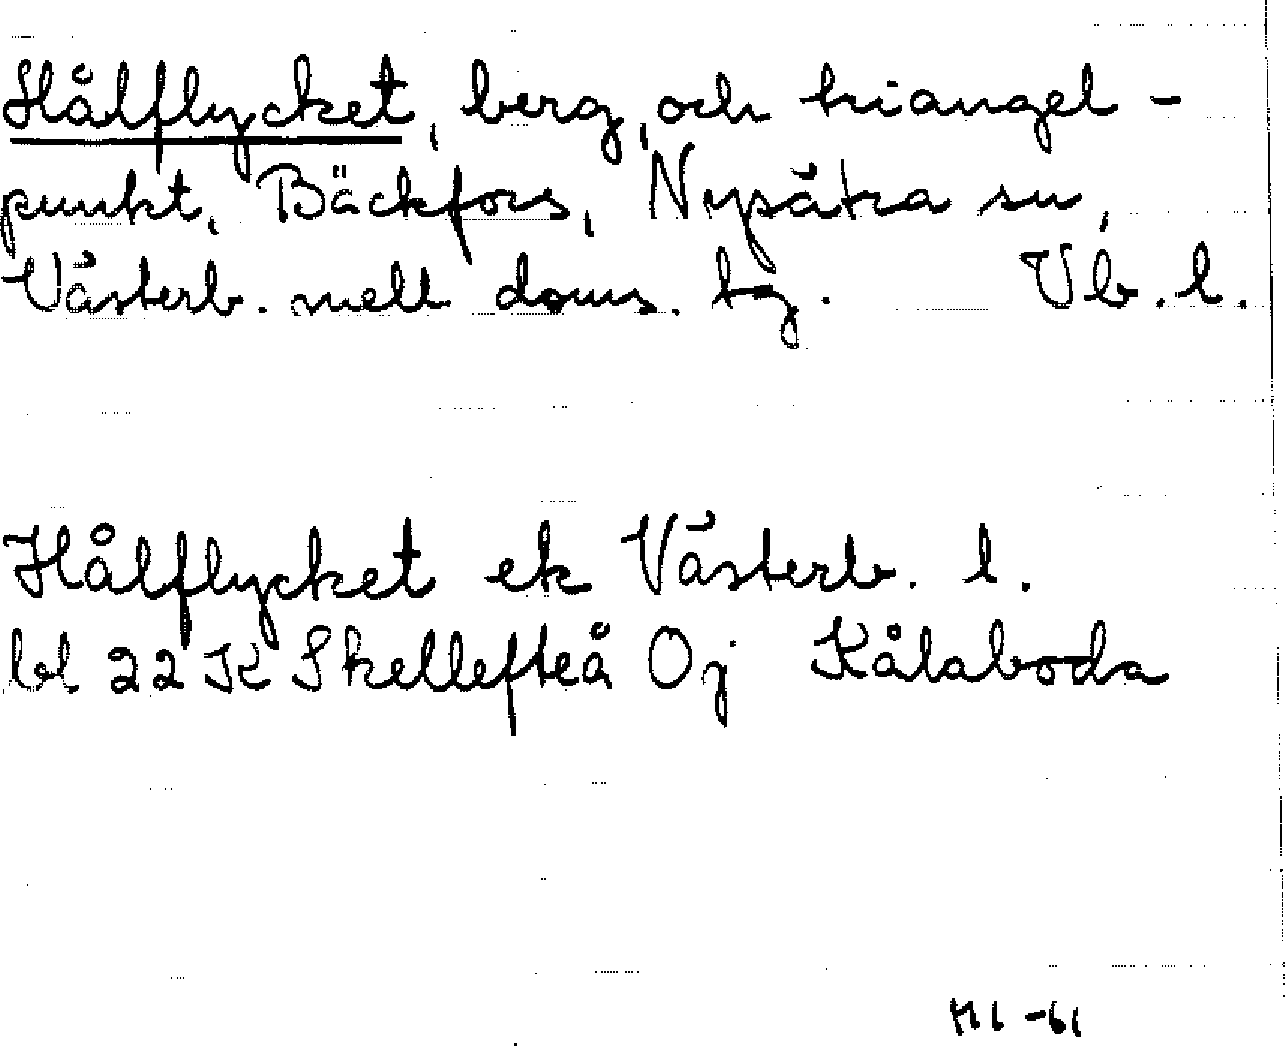 Hålflycket, berg, och triangel-
punkt, Bäckfors, Nysätra sn,
Västerb. mell doms. tg. Vb. l.
Hålflycket ek Västerb. l.
bl 22 K Skellefteå Oj Kålaboda
-61